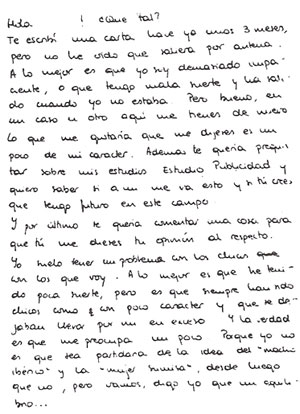 Hola. ¡ ¿Que tal?
Te escribí una carta hace ya unos 3 meses,
pero no he oído que saliera por antena.
A lo mejor es que yo soy demasiado impa-
ciente, o que tengo mala suerte y ha sali-
do cuando yo no estaba. Pero bueno, en
un caso u otro aquí me tienes de nuevo
Lo que me gustaría que me dijeras es un
poco de mi caracter. Además te quería pregun-
tar sobre mis estudios Estudio Publicidad y
quiero saber si a mi me va esto y si tú crees
que tengo futuro en este campo.
Y por último te quería comentar una cosa para
que tú me dieses tu opinión al respecto.
Yo suelo tener un problema con los chicos
con los que voy. A lo mejor es que he teni-
do poca suerte, pero es que siempre han sido
chicos como un poco caracter y que se de-
jaban llevar por mi en exceso Y la verdad
es que me preocupa un poco Porque yo no
es que sea partidaria de la idea del "macho
ibérico" y la "mujer sumisa", desde luego
que no, pero vamos, digo yo que un equili-
brio...